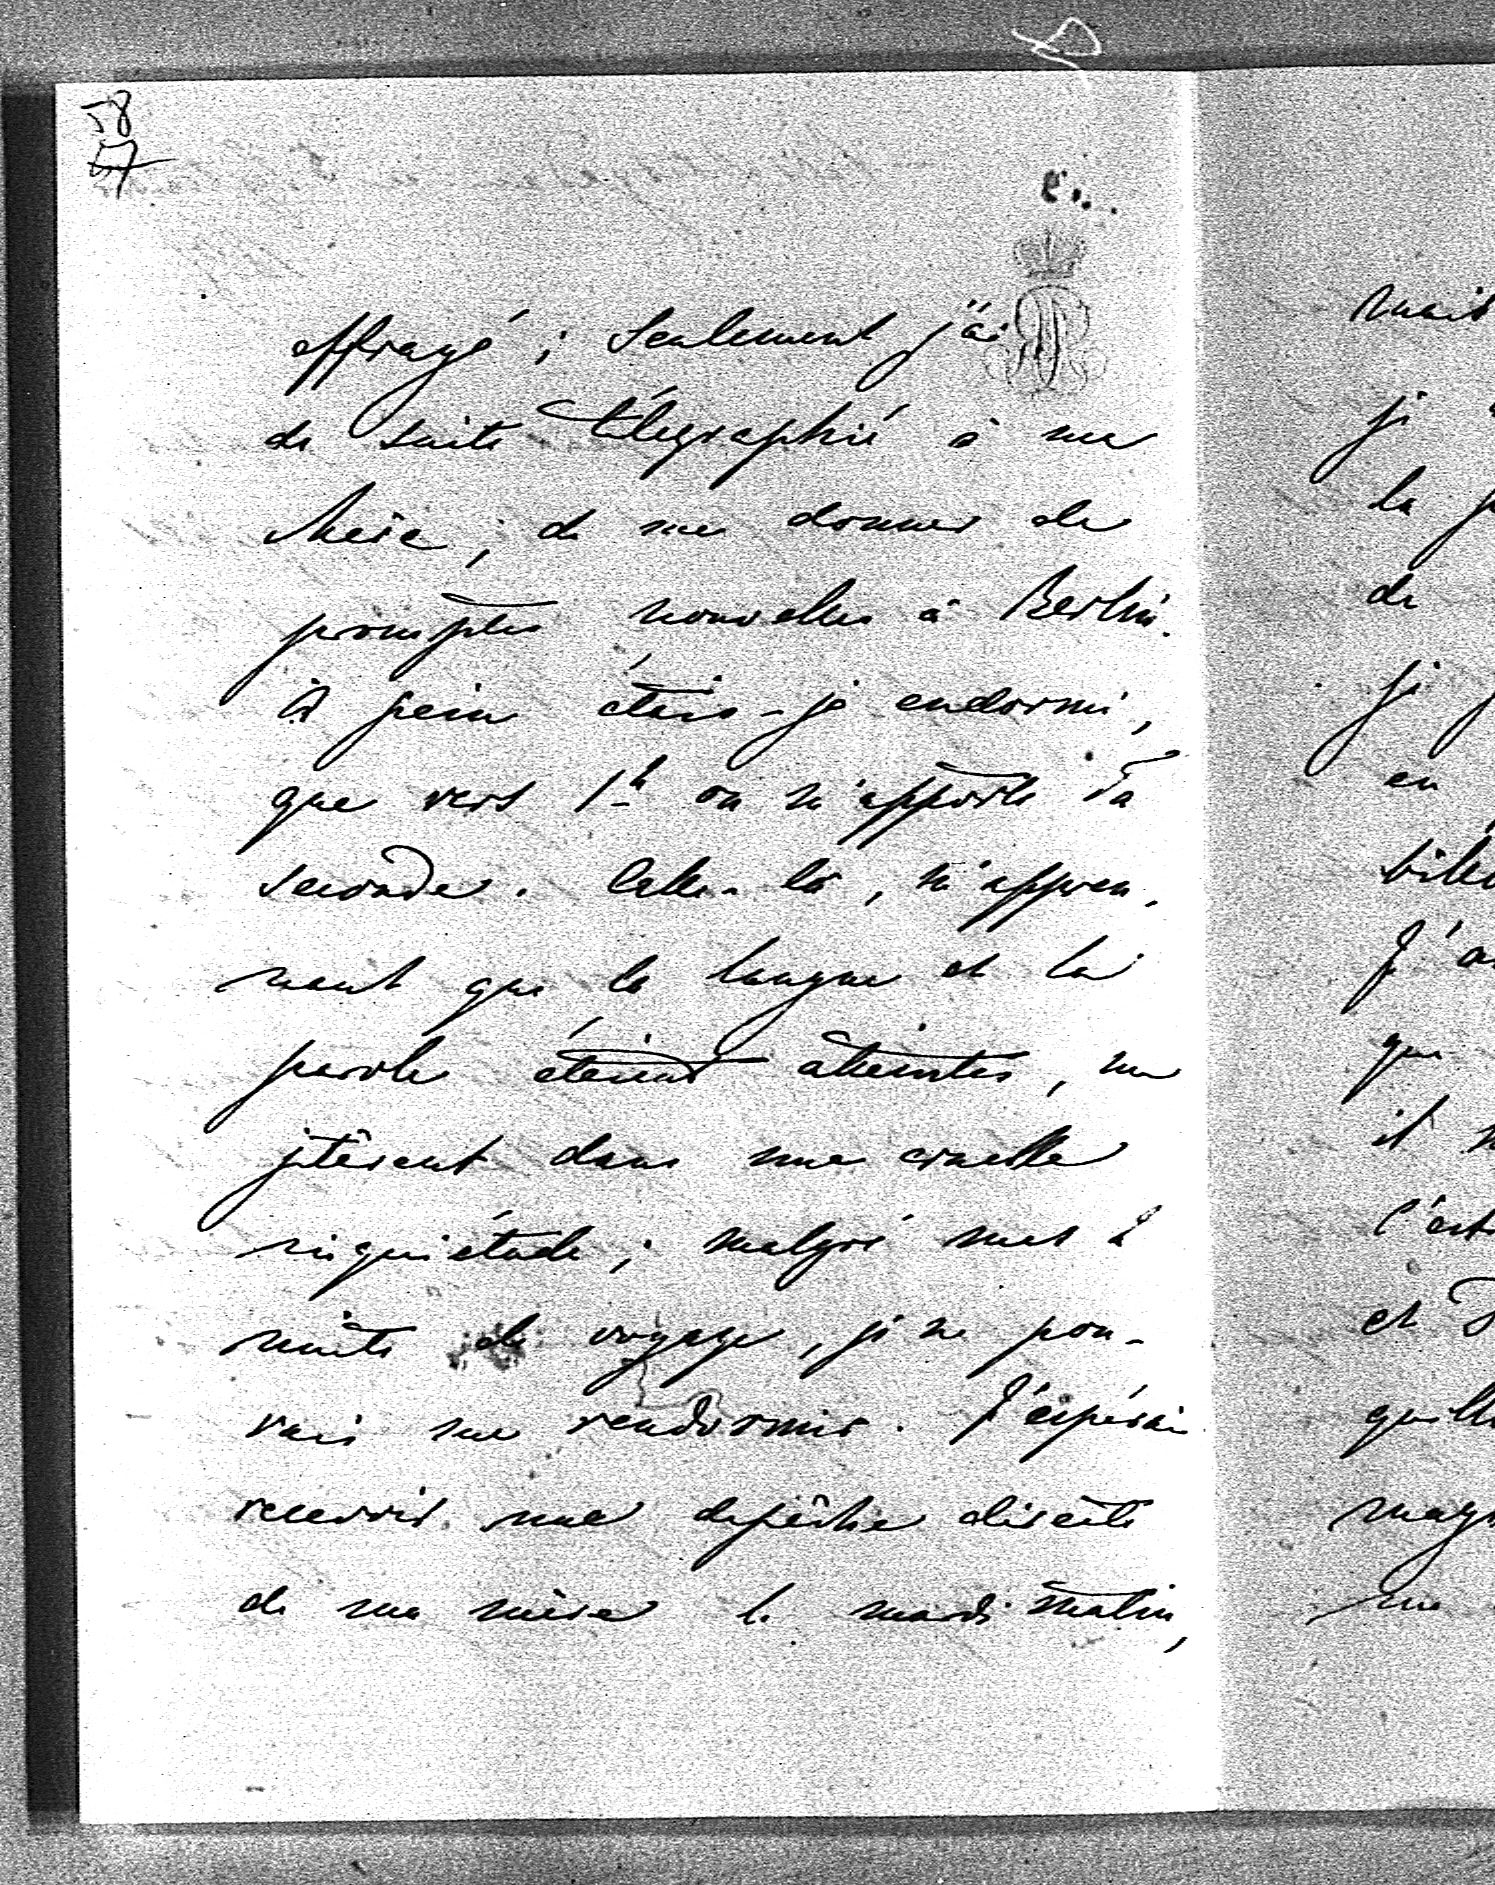 58
57
effrayé; seulement j'ai
de suite télégraphié à ma
Mère, de me donner de
promptes nouvelles à Berlin.
A peine étais-je endormi,
que vers 1h on m'apporte la
seconde. Celle-là, m'appre-
nant que la langue et la
parole étaient atteintes, me
jetèrent dans une cruelle
inquiétude; malgré mes 2
nuits de voyage, je ne pou-
vais me rendormir. J'espérais
recevoir une dépêche directe
de ma mère le mardi matin,
mais
je
la
de
je
en
J'a
que
il
c'est
et
me